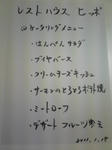 レストハウス ヒッポ
ケータリングメニュー
・はんぺんサラダ
・ブイヤベース
・クリームチーズキッシュ
・サーモンとほうれん草
・ミートローフ
・デザート フルーツ
2011.1.18